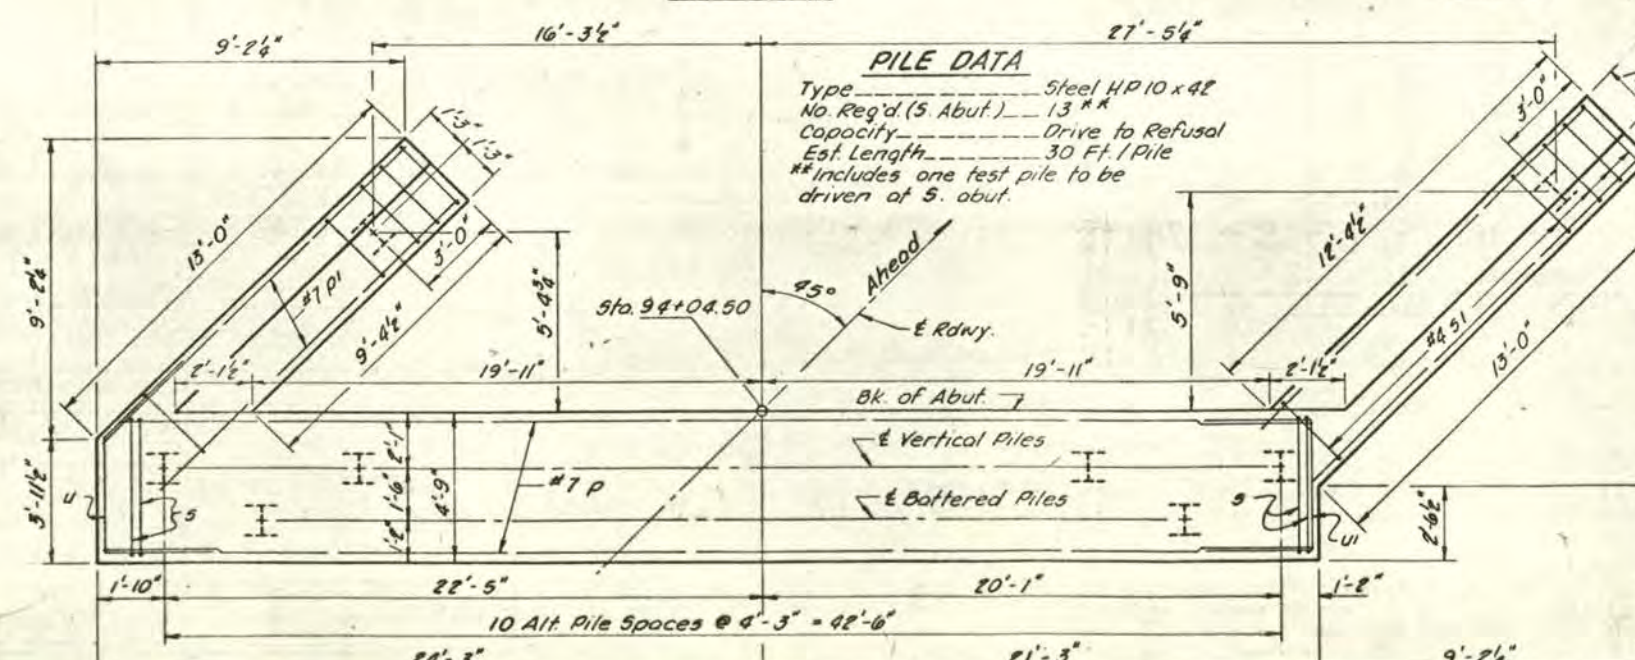 9'-2¼"
16'-3½"
27'-5¼"
PILE DATA
Type Steel HP 10 x 42
No. Req'd. (S. Abut.) 13 **
Capacity Drive to Refusal
Est. Length 30 Ft. / Pile
** Includes one test pile to be
driven at S. abut.
1'-3"
1'-3"
3'-0"
13'-0"
#7 P1
3'-0"
9'-4½"
9'-2¼"
5'-4¾"
Sta. 94+04.50
45°
Ahead
℄ Rdwy.
5'-9"
12'-4½"
#4 S1
13'-0"
2'-1½"
19'-11"
19'-11"
2'-1½"
Bk. of Abut.
℄ Vertical Piles
℄ Battered Piles
#7 P
2'-1"
1'-6"
1'-2"
4'-9"
3'-11½"
U
S
S
U1
2'-6½"
1'-10"
22'-5"
20'-1"
1'-2"
10 Alt. Pile Spaces @ 4'-3" = 42'-6"
24'-3"
21'-3"
9'-2½"